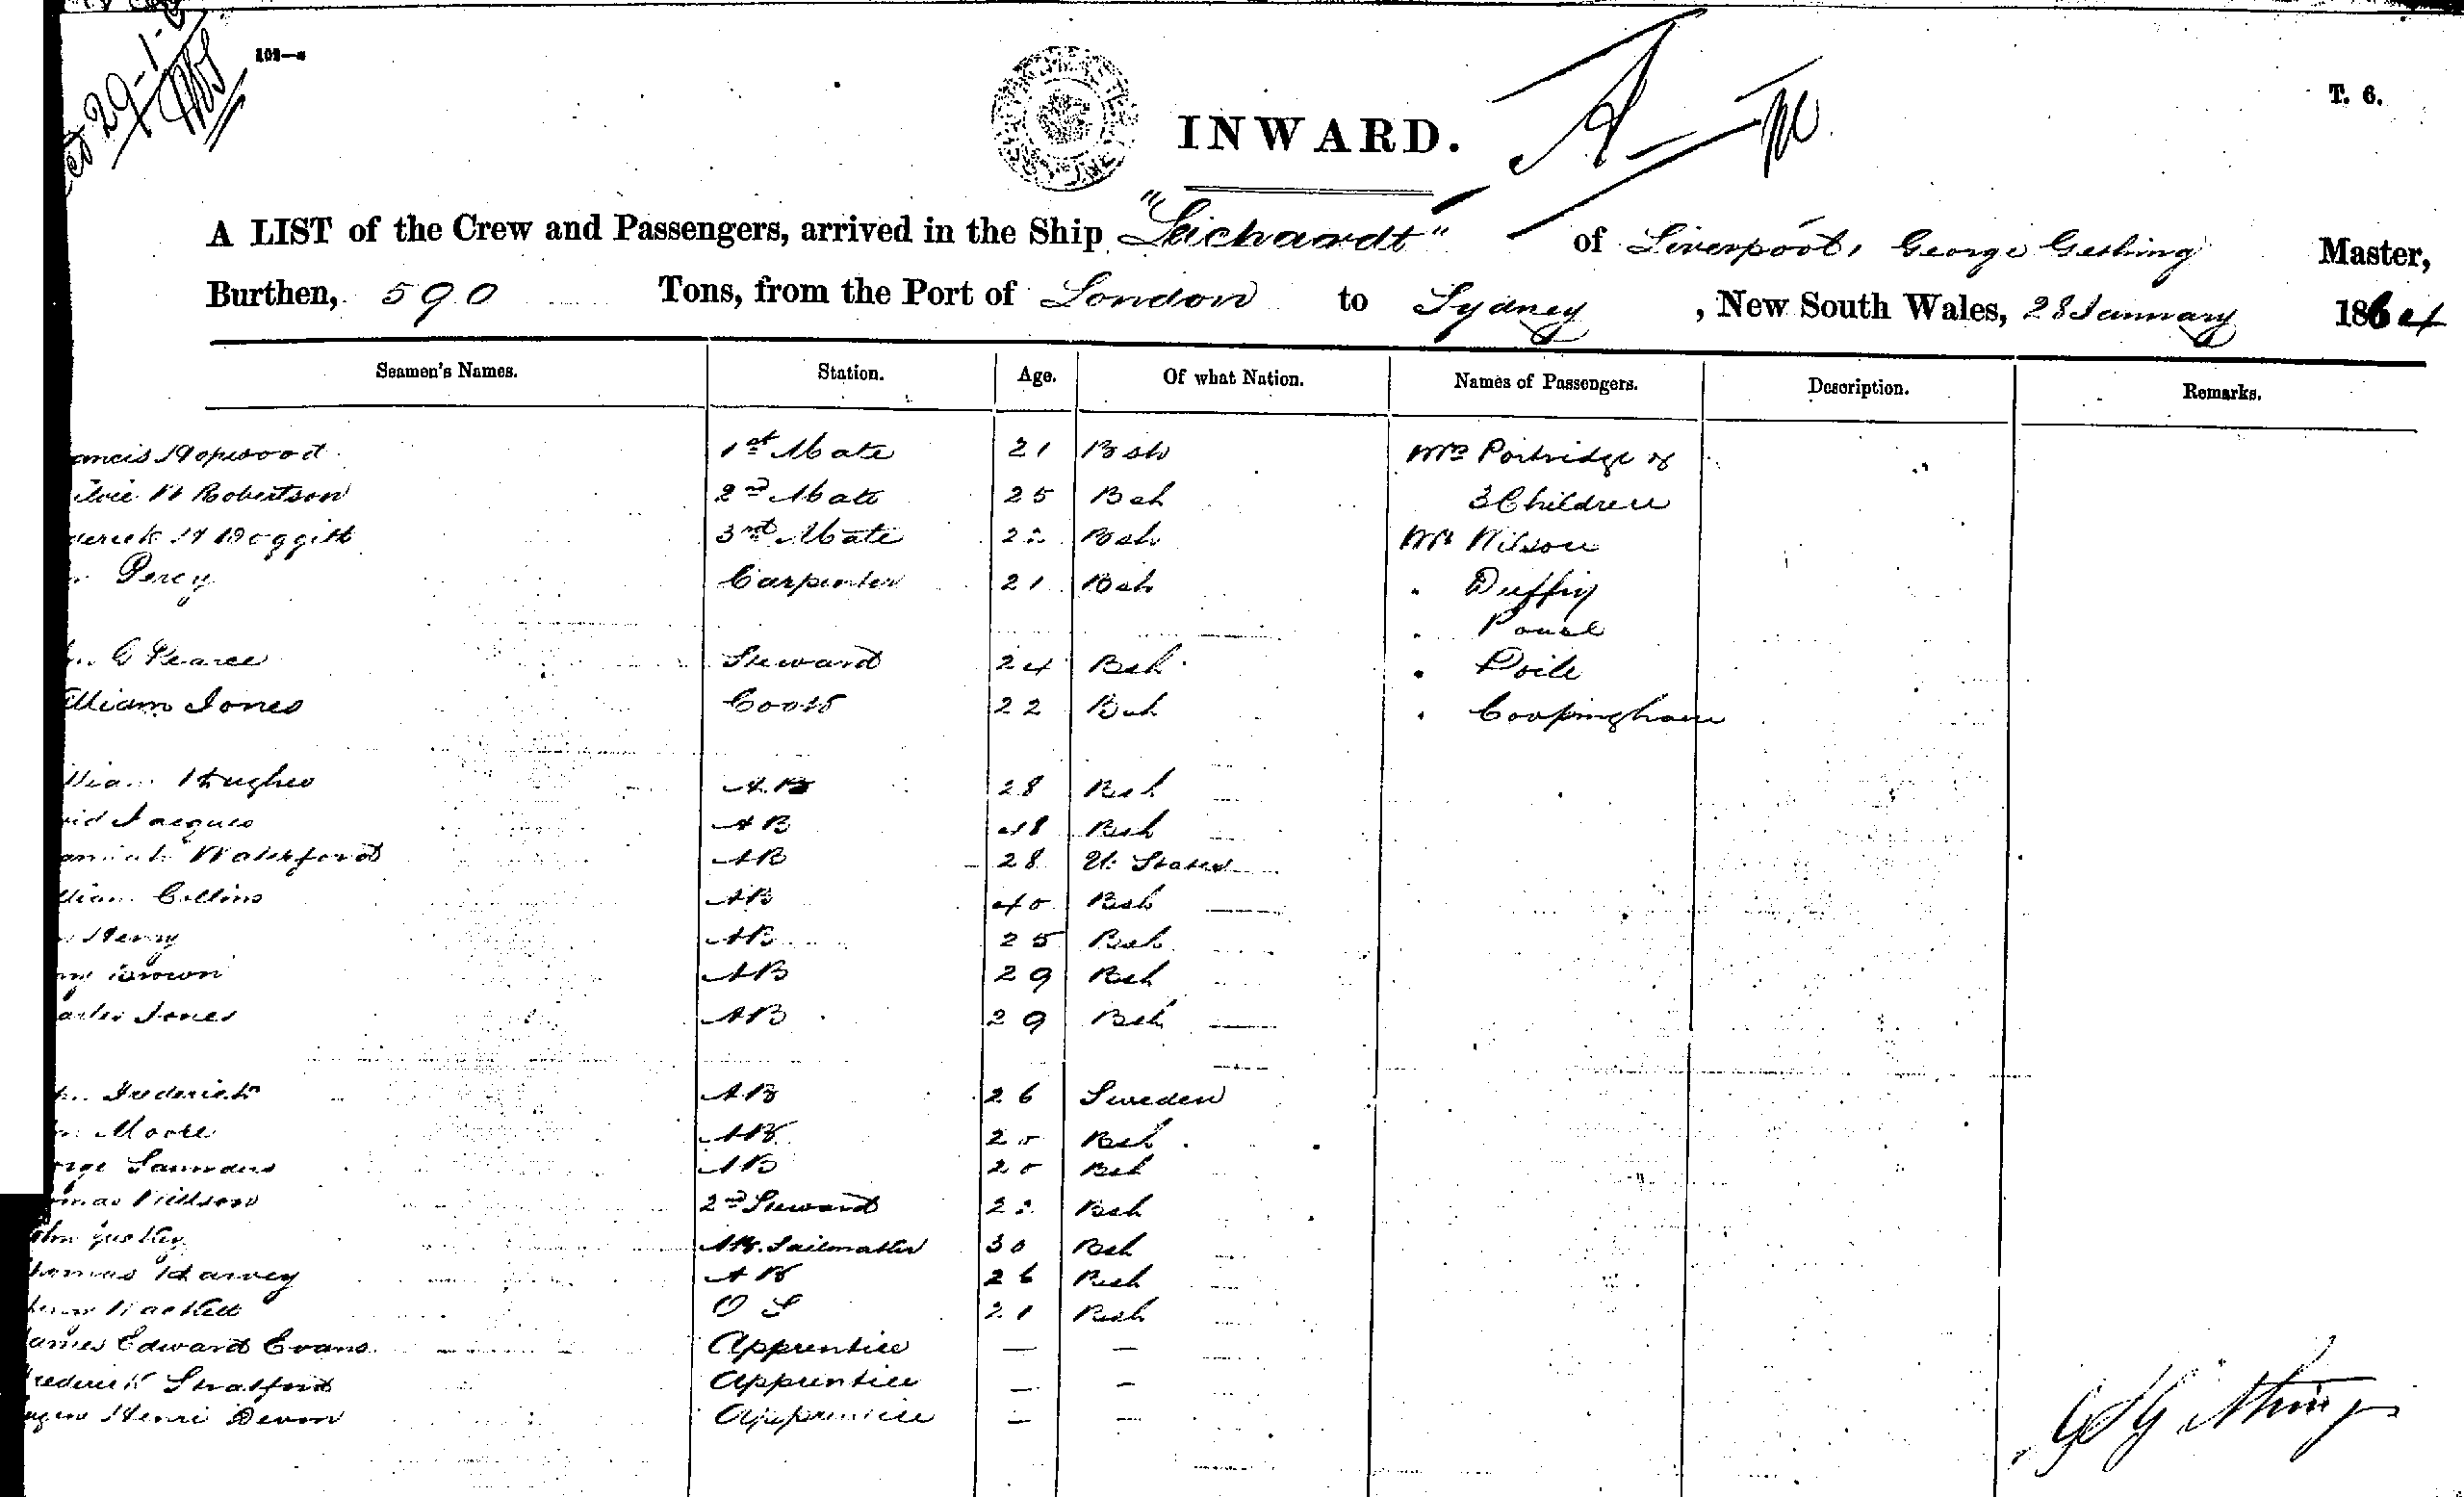 29-1-6
109—a
INWARD.
T. 6.
A LIST of the Crew and Passengers, arrived in the Ship "Leichardt" of Liverpool, George Gething Master,
Burthen, 590 Tons, from the Port of London to Sydney, New South Wales, 28 January 1864
Seamen's Names. Station. Age. Of what Nation. Names of Passengers. Description. Remarks.
ancis Hopwood 1st Mate 21 Bsh Mrs Portridge &
W Robertson 2nd Mate 25 Bsh 3 Children
derick H Doggitt 3rd Mate 22 Bsh Mr Wilson
Percy Carpenter 21 Bsh " Duffiy
"
G Pearce Steward 24 Bsh " Doile
illiam Jones Cook 22 Bsh " Cookingham
lliam Hughes A.B 28 Bsh
vid Jacques AB 48 Bsh
Waterford AB 28 U. States
lliam Collins AB 40 Bsh
Henry AB 25 Bsh
Brown AB 29 Bsh
arles Jones AB 29 Bsh
Frederick AB 26 Sweden
Moore AB 20 Bsh
orge Saunders AB 20 Bsh
omas Willson 2nd Steward 22 Bsh
ohn AB. Sailmaker 30 Bsh
homas Harvey AB 26 Bsh
Hackett O S 21 Bsh
ames Edward Evans Apprentice — —
rederick Stratford Apprentice — —
ugene Henri Devon Apprentice — —
G Gething